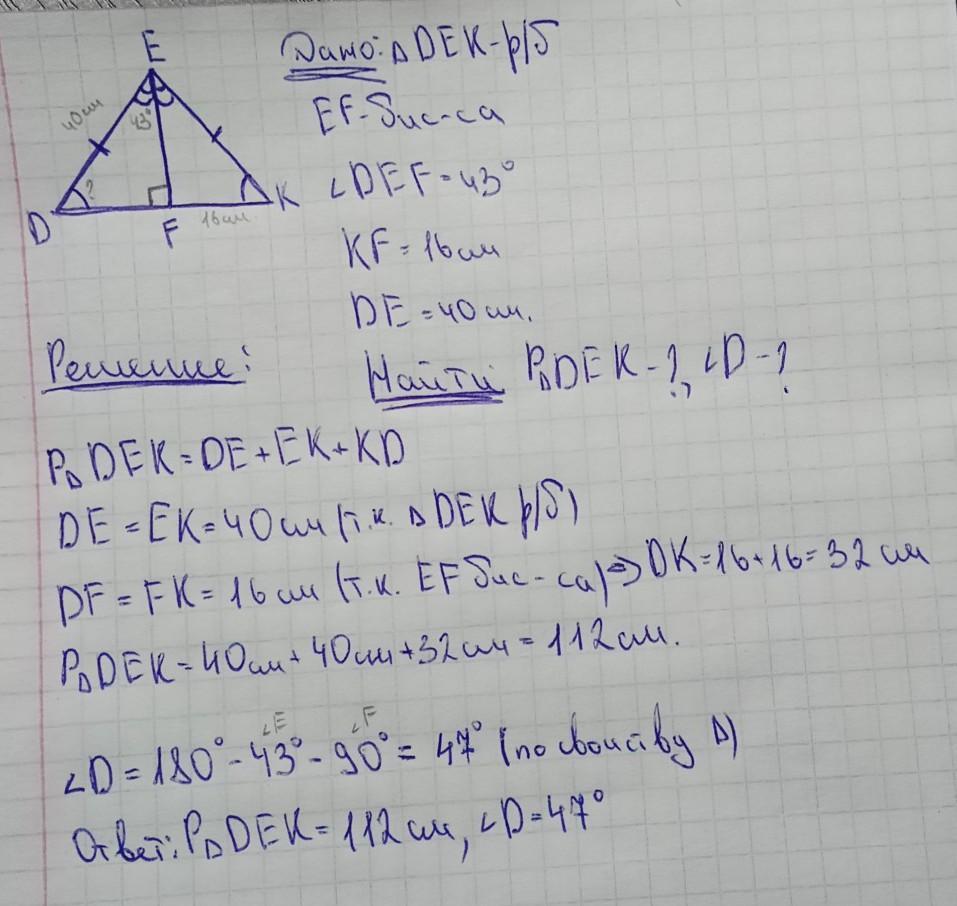 E
40см
43°
?
D
F
16см
K
Дано: △DEK-р/б
EF-бис-са
∠DEF=43°
KF=16см
DE=40см.
Решение:
Найти P△DEK-?, ∠D-?
P△DEK=DE+EK+KD
DE=EK=40см (т.к. △DEK р/б)
DF=FK=16см (т.к. EF бис-са)⇒DK=16+16=32см
P△DEK=40см+40см+32см=112см.
∠E ∠F
∠D=180°-43°-90°=47° (по свойству △)
Ответ: P△DEK=112см, ∠D=47°